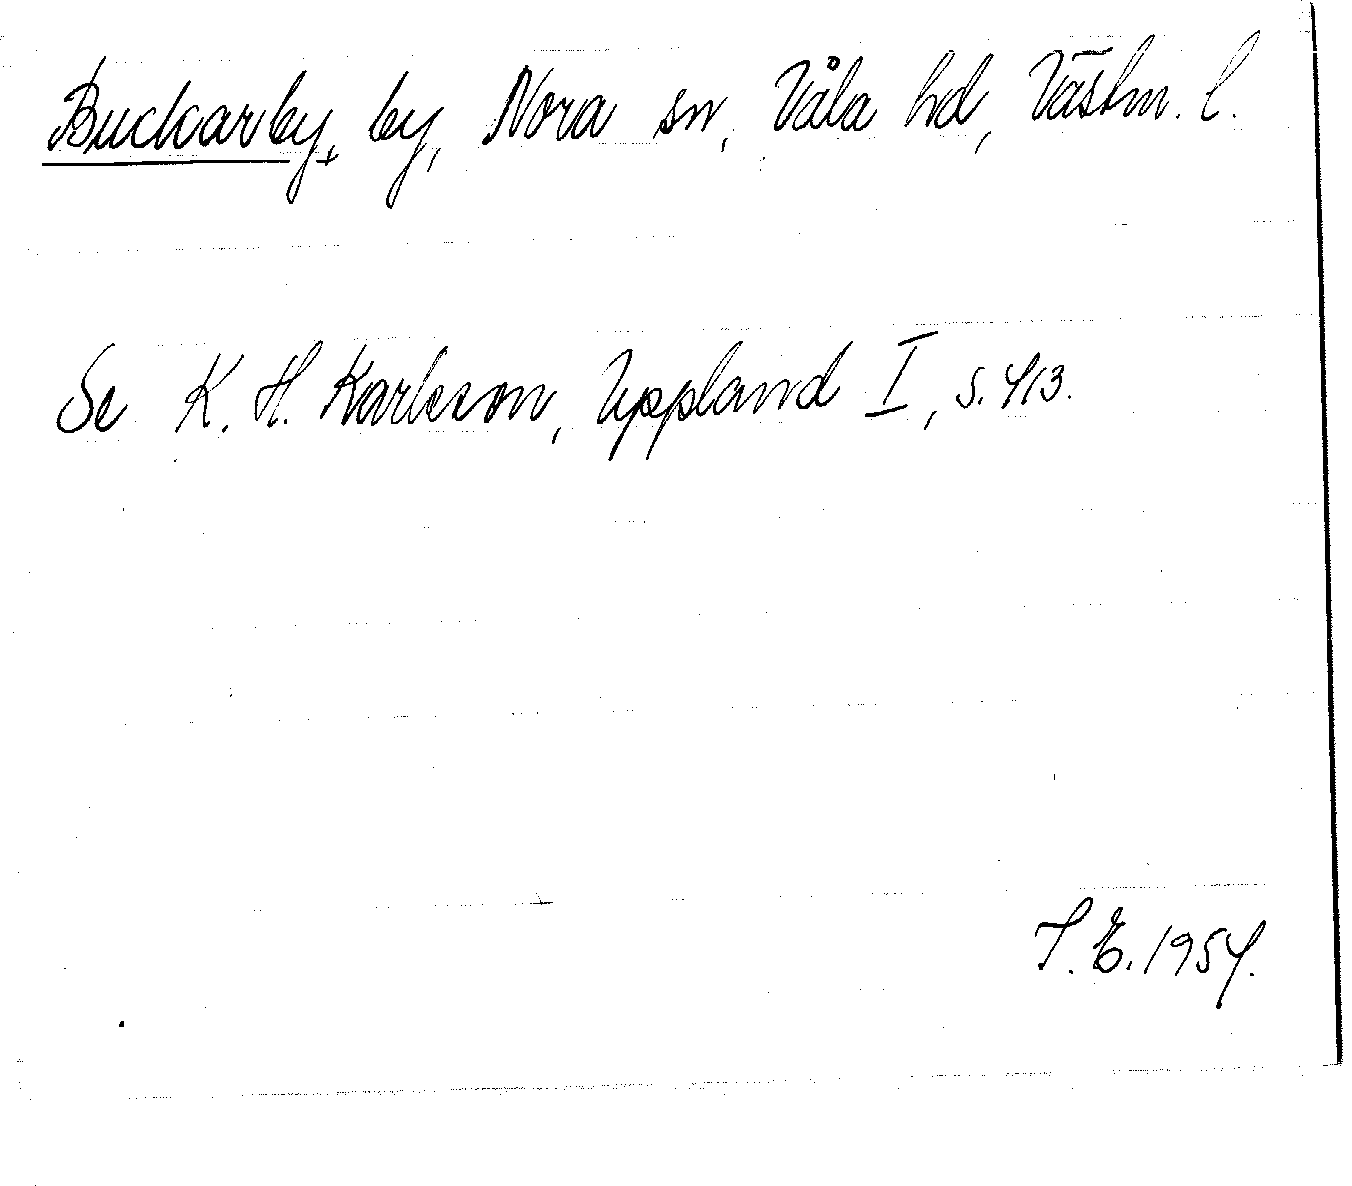 Buckarby, by, Nora sn, Våla hd, Västm. l.
Se K. H. Karlsson, Uppland I, s. 413.
S. E. 1954.